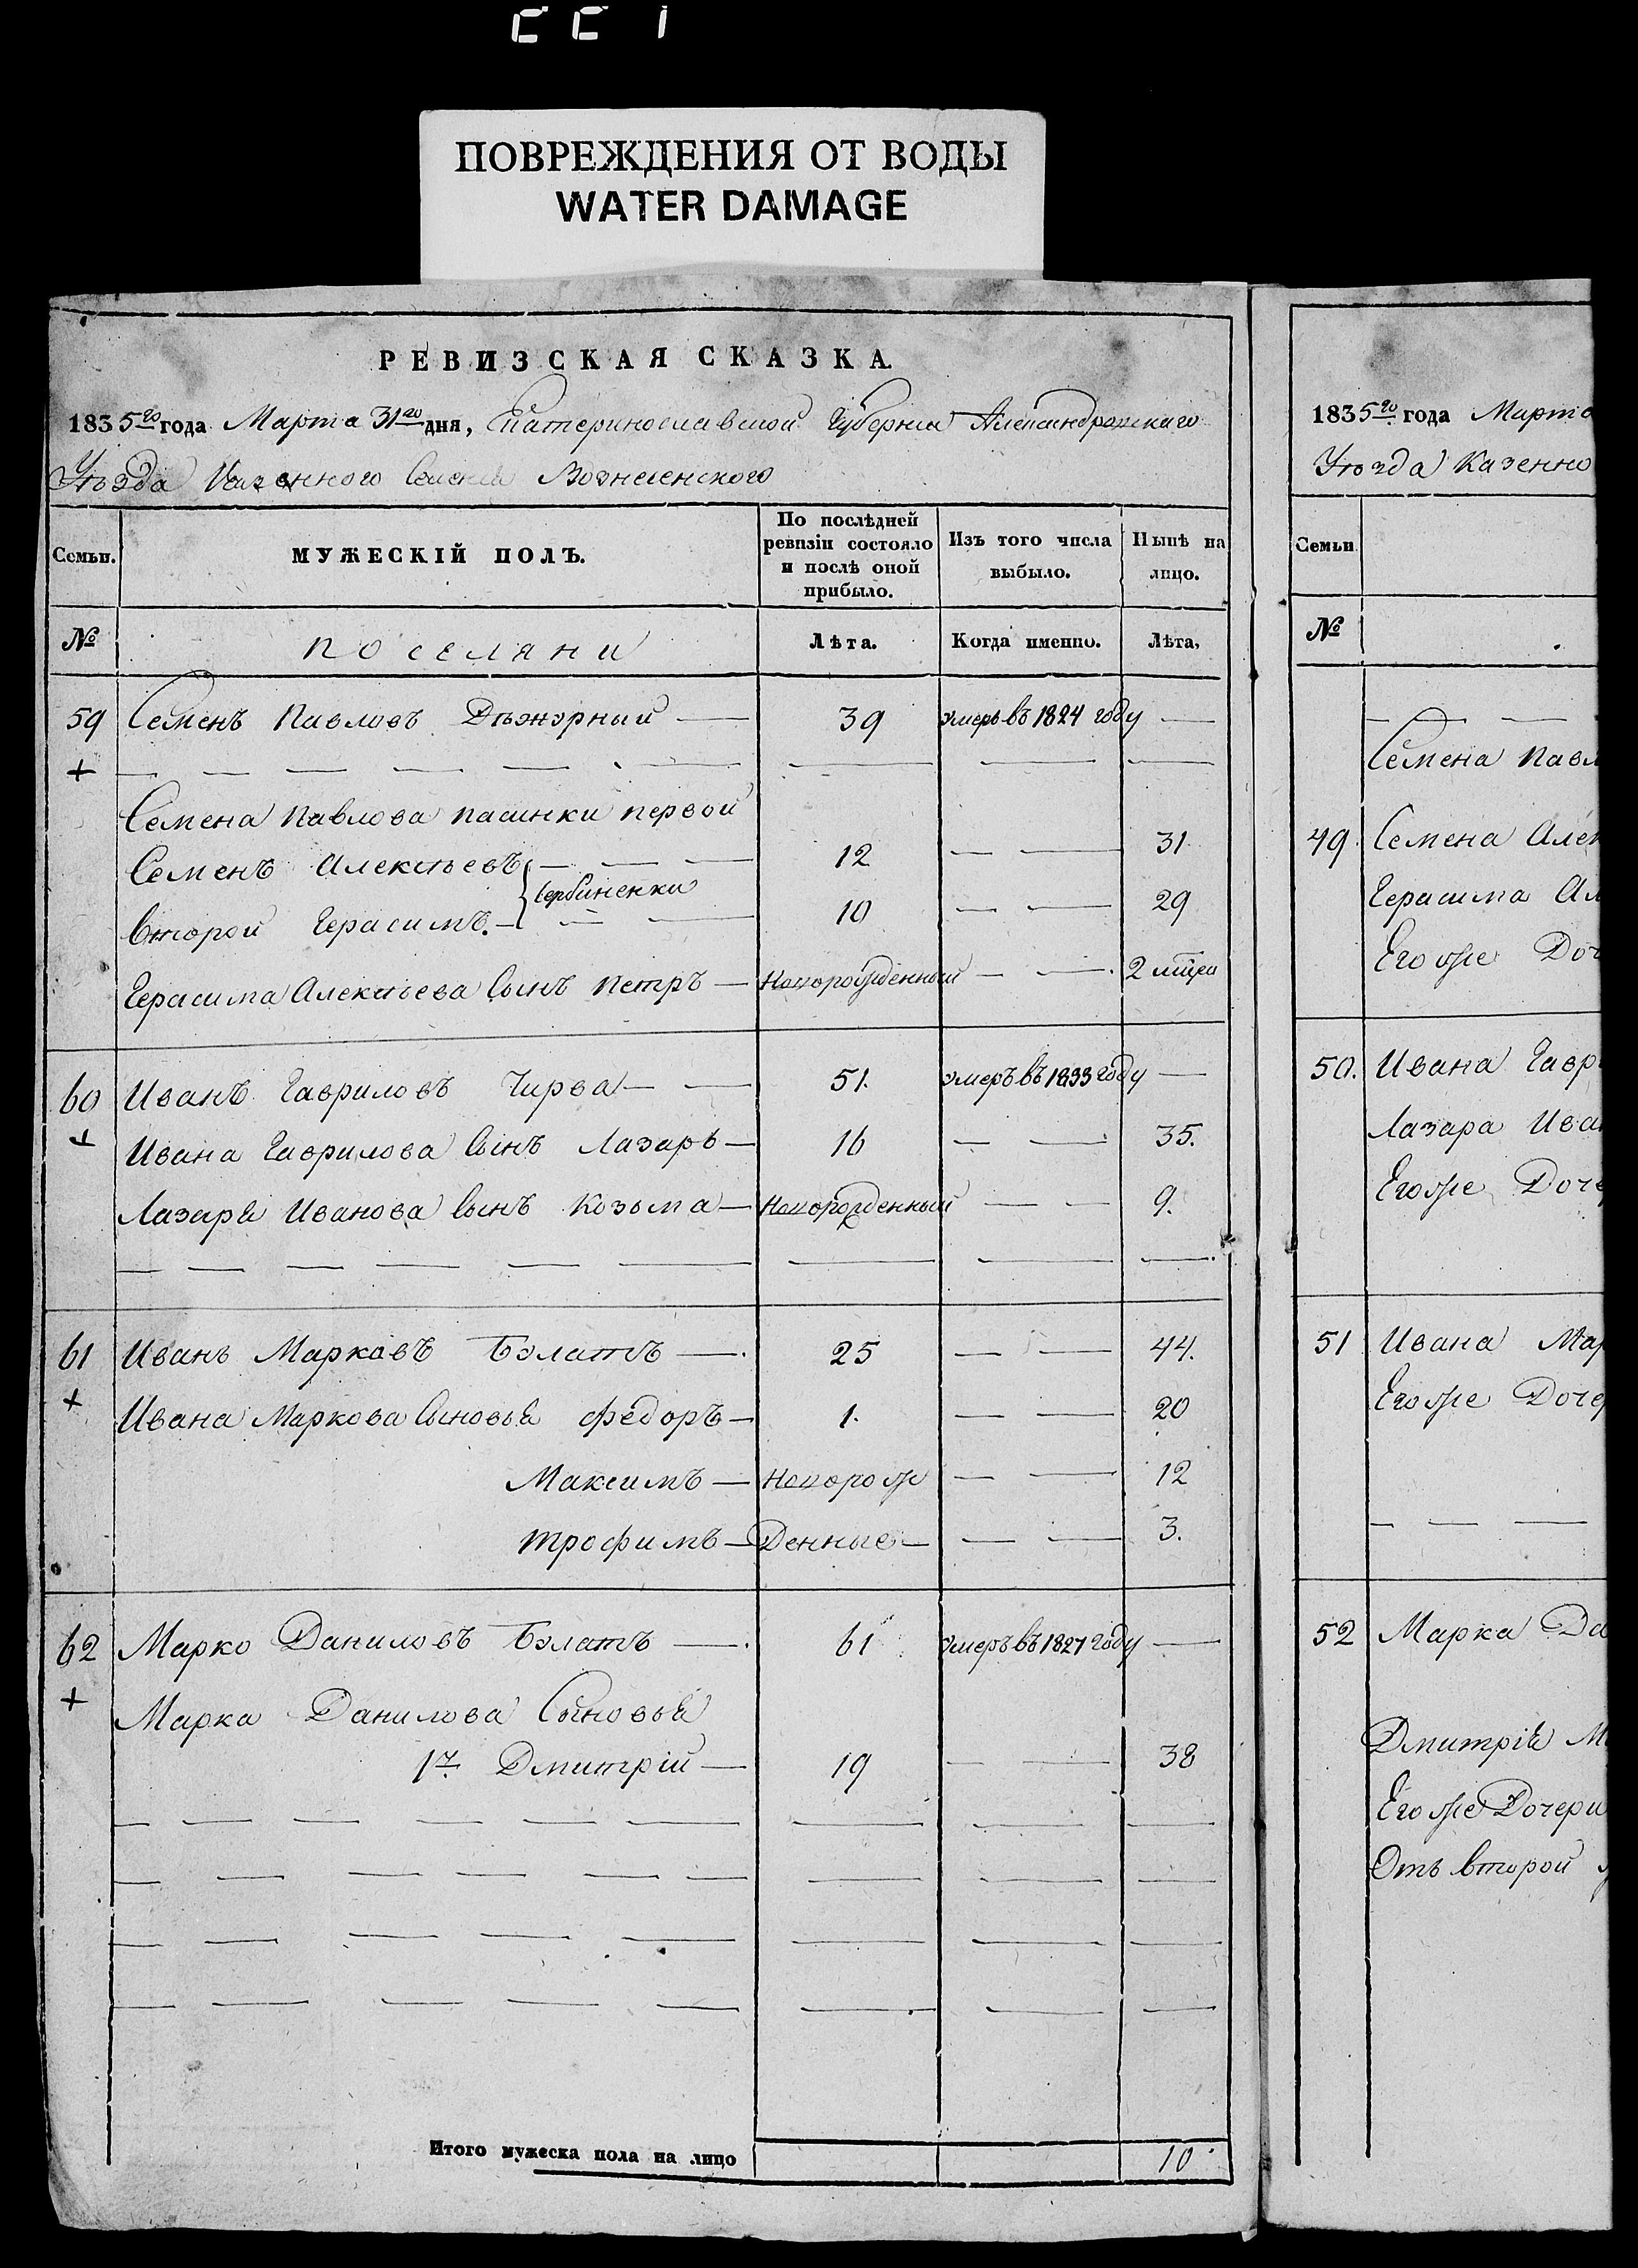 ПОВРЕЖДЕНИЯ ОТ ВОДЫ
WATER DAMAGE
РЕВИЗСКАЯ СКАЗКА
1835го года Марта 31го дня, Екатеринославской Губернии Александровскаго
Уѣзда Казенного Селенія Вознесенского
Семьи.
МУЖЕСКІЙ ПОЛЪ.
По послѣдней ревизіи состояло и послѣ оной прибыло.
Изъ того числа выбыло.
Нынѣ на лицо.
№
поселяни
Лѣта.
Когда именно.
Лѣта,
59 Семенъ Павловъ 39 умеръ въ 1824 году —
+
Семена Павлова пасинки первой
Семенъ Алексѣевъ 12 — — 31
Второй Герасимъ. 10 — — 29
Герасима Алексѣева Сынъ Петръ — Новорожденный — — 2 мцея
60 Иванъ Гавриловъ Чирва — — 51. умеръ въ 1833 году —
+ Ивана Гаврилова Сынъ Лазарь — 16 — — 35.
Лазаря Иванова Сынъ Козьма — Новорожденный — — 9.
61 Иванъ Марковъ Бэлатъ — 25 — — 44.
+ Ивана Маркова Сыновья Федоръ — 1. — — 20
Максимъ — Новорож — — 12
Трофимъ — Денные — — — 3.
62 Марко Даниловъ Бэлатъ — 61 умеръ въ 1827 году —
+ Марка Данилова Сыновья
1й Дмитрій — 19 — — 38
Итого мужеска пола на лицо 10
1835го года Марта
Уѣзда Казенно
Семьи
№
Семена Павл
49 Семена Алек
Герасима Ал
Егоже Доч
50. Ивана Гавр
Лазара Иван
Егоже Доче
51 Ивана Мар
Егоже Дочер
52 Марка Да
Дмитрія М
Егоже Дочери
Отъ второй